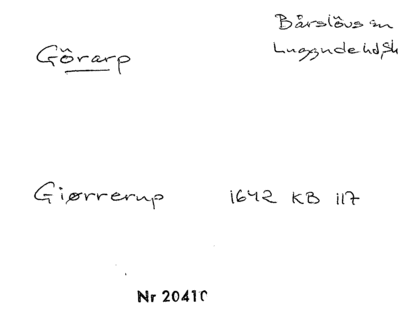 Görarp
Bårslövs sn
Luggude hd, Sk
Giørrerup 1642 KB 117
Nr 20410